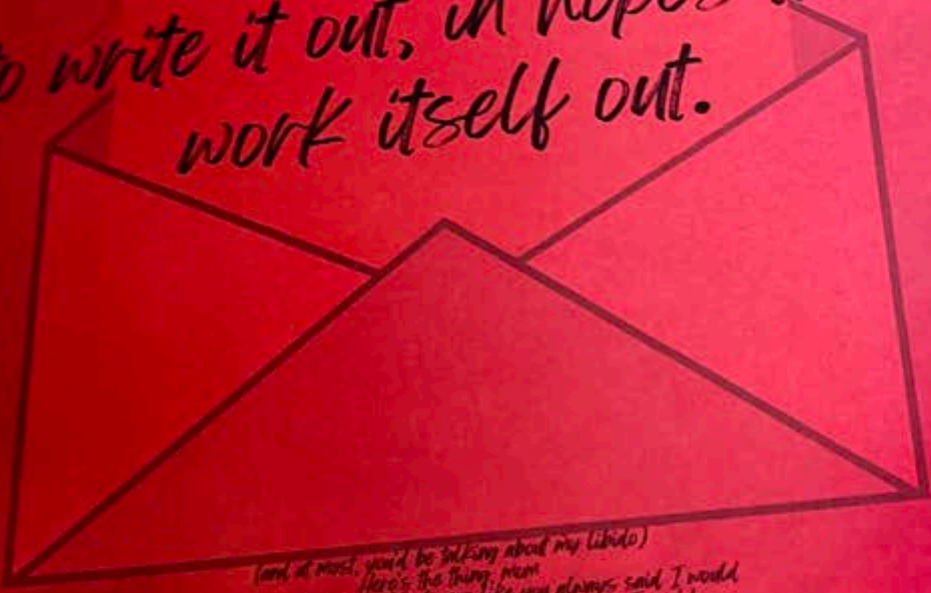 to write it out, in hopes
work itself out.
(and at most, you'd be talking about my libido)
Here's the thing, Mom
like you always said I would